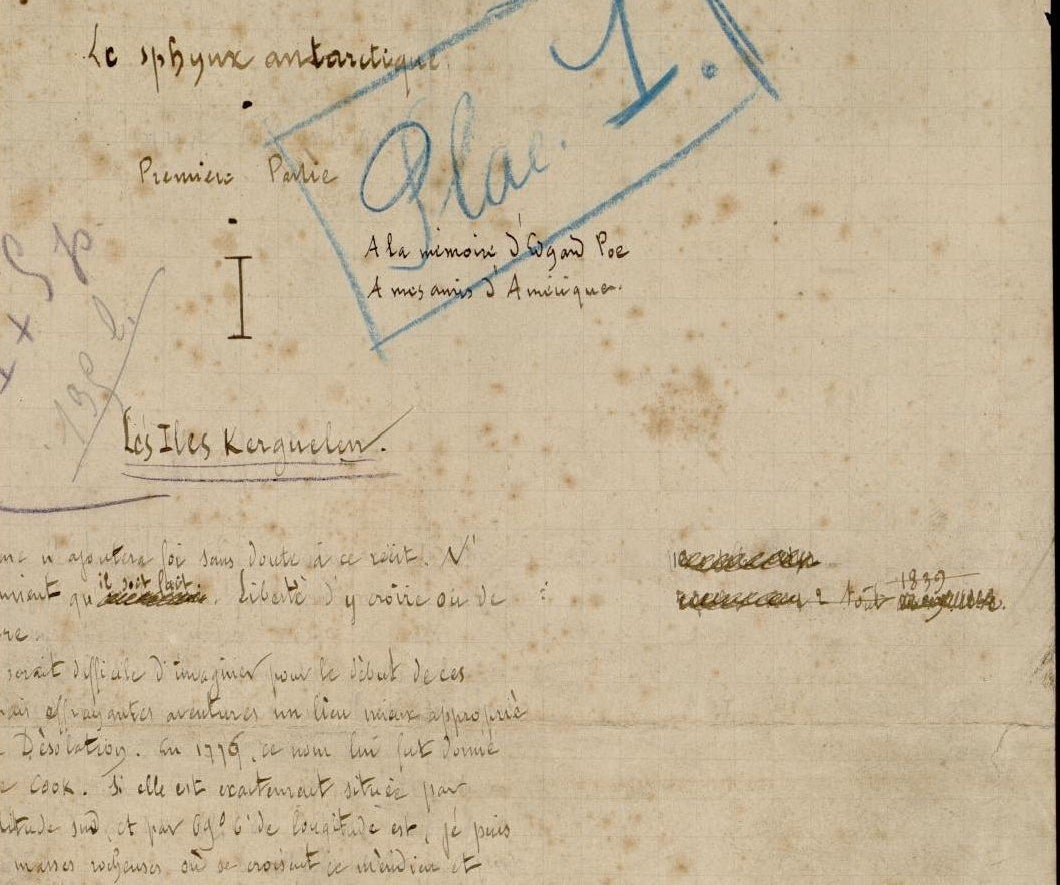 Le sphynx antarctique.
Plac. 1.
Première Partie
I
A la mémoire d'Edgard Poe
A mes amis d'Amérique.
Les Iles Kerguelen.
n'ajoutera foi sans doute à ce récit. N'
qu'il soit fait. Liberté d'y croire ou de
serait difficile d'imaginer pour le début de ces
effrayantes aventures un lieu mieux approprié
Désolation. En 1779, ce nom lui fut donné
Cook. Si elle est exactement située par
sud, et par 69° 6' de longitude est, je puis
masses rocheuses, où se croisent ce méridien et
2 Août 1839